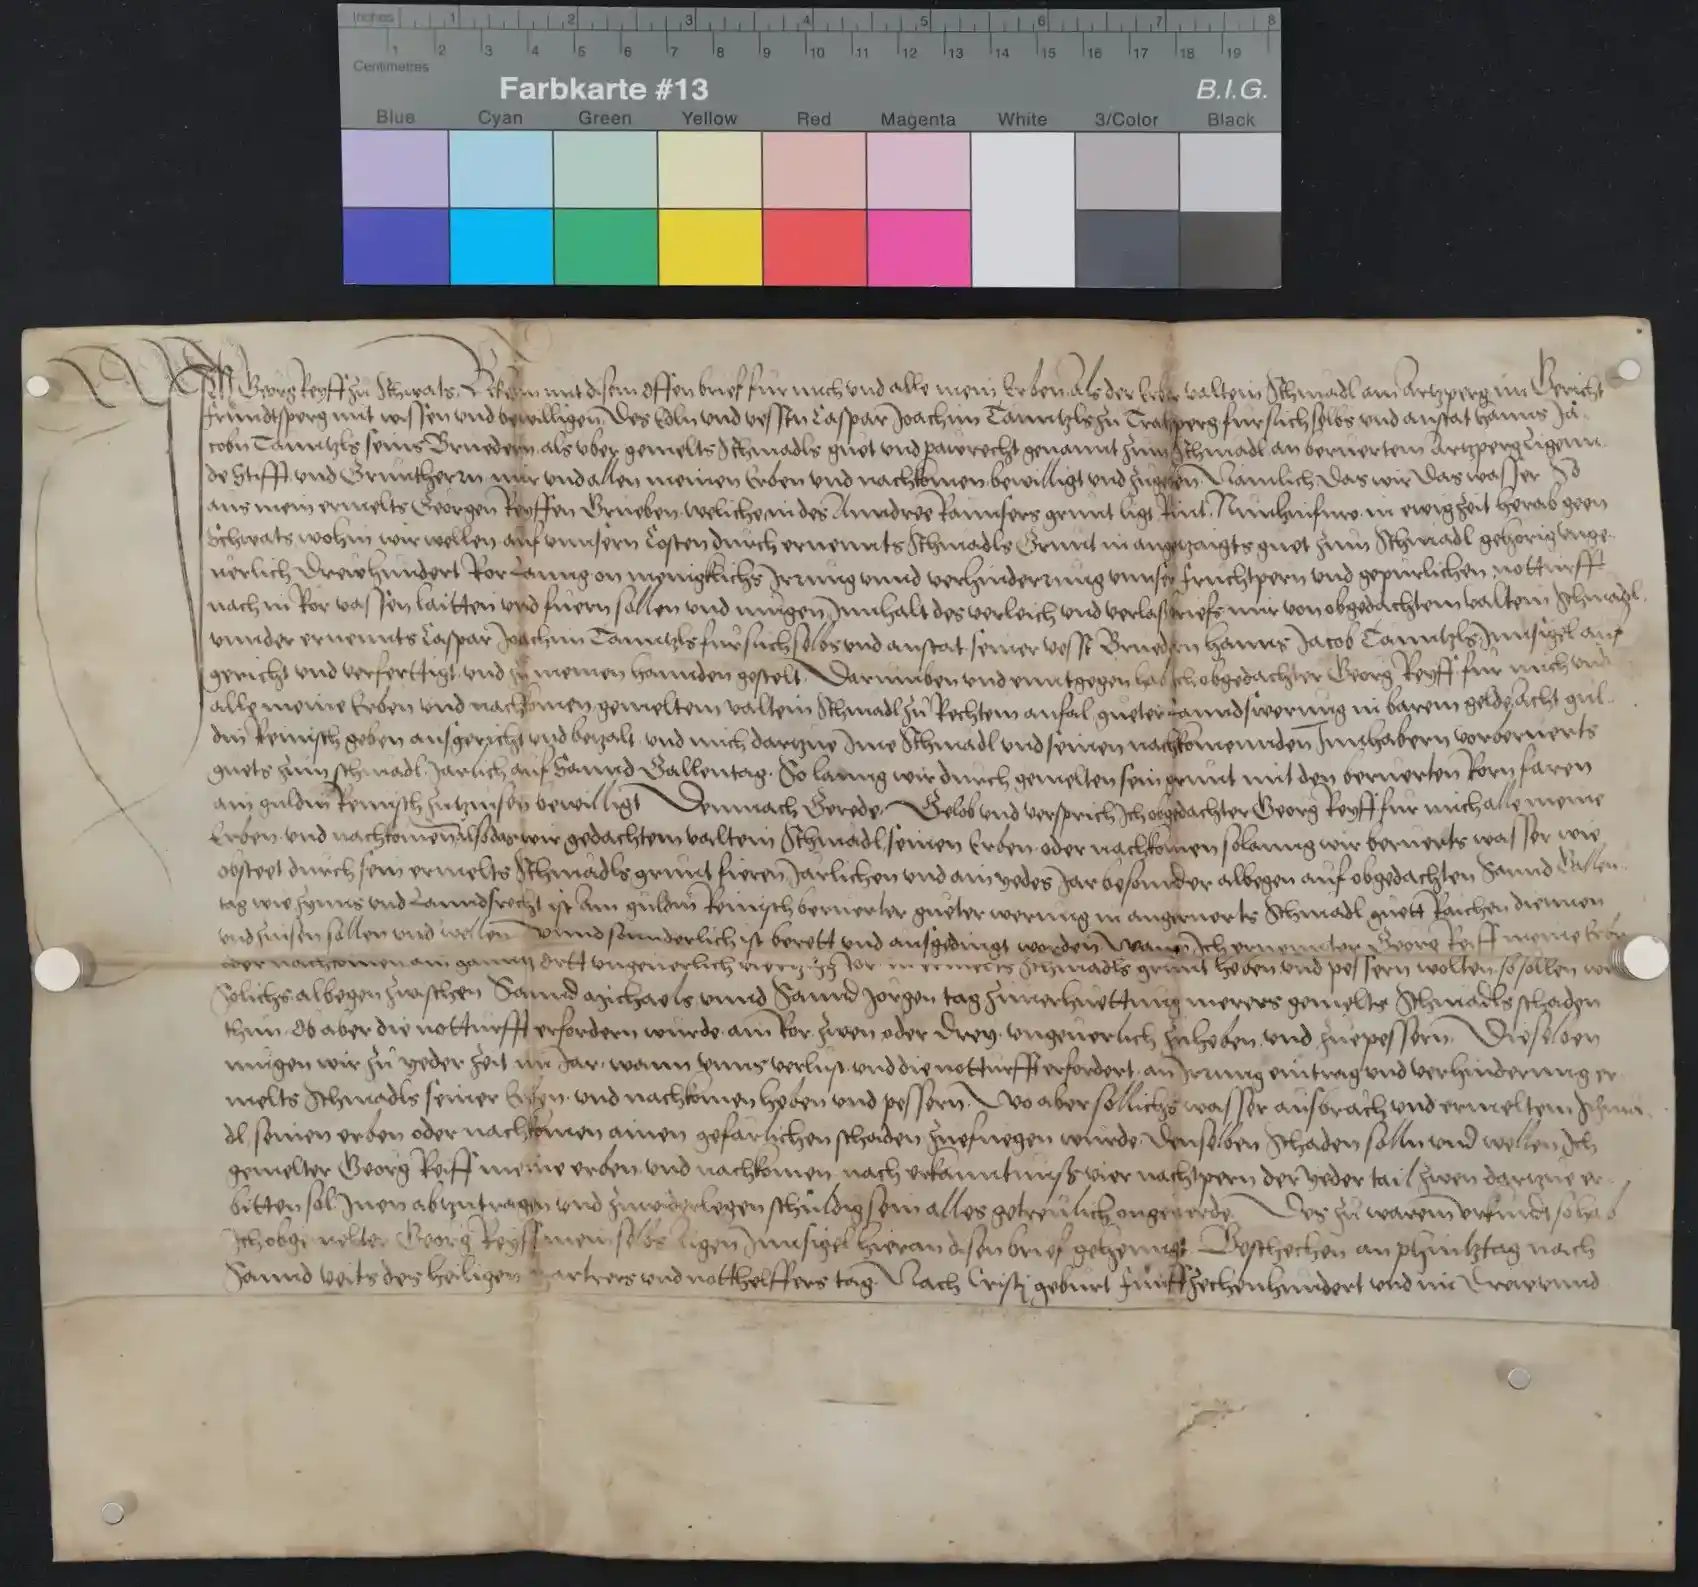 Inches 1 2 3 4 5 6 7 8
1 2 3 4 5 6 7 8 9 10 11 12 13 14 15 16 17 18 19
Centimetres
Farbkarte #13 B.I.G.
Blue Cyan Green Yellow Red Magenta White 3/Color Black
Ich Georg Reyff zu Schwats Bekenn mit disem offen brief fur mich und alle mein Erben Als der Valtein Schmadl am Artzperg im Gericht
frundtsperg mit wissen und bewilligen Des Edln und vessten Caspar Joachim Tanntzls zu Tratzperg fur sich selbs und anstat Hanns Ja
cobn Tanntzls seins Bruedern als uber gemelts Schmadls guet und paurecht genannt zum Schmadl an beruertem Artzperg
de Stifft und Gruntherrn mir und allen meinen Erben und nachkomen bewilligt und zugeben Namlich Das wir Das wasser So
aus mein ermelts Georgen Reyffen Grueben weliche in des Anndree grunt ligt Rint Nun hinfuro in ewig zeit herab geen
Schwats wohin wir wellen auf unnsern Costen durch ernennts Schmadls Grunt in angezaigts guet zum Schmadl gehorig unge
uerlich Drewhundert Ror lanng on menigklichs Irrung unnd verhinderung unnser fruchtpern und gepurlichen notturfft
nach in Ror vassen laitten und fuern sollen und mugen Innhalt des verleich und verlasbriefs mir von obgedachtem Valtein Schmadl
unnder ernennts Caspar Joachim Tanntzls fur sich selbs und anstat seiner vesst Bruedern Hanns Jacob Tanntzls Innsigel auf
gericht und verferttigt und zu meinen hannden gestelt Darumben und enntgegen hab ich obgedachter Georg Reyff fur mich und
alle meine Erben und nachkomen gemeltem Valtein Schmadl zu Rechtem anfal gueter lanndswerung in barem gelde Acht gul
din Reinisch geben ausgericht und betzalt und mich dartzue Ime Schmadl und seinen nachkomennden Innhabern vorberuerts
guets zum Schmadl Jarlich auf Sannd Gallentag So lanng wir durch gemelten sein grunt mit den beruerten Rorn faren
ain guldin Reinisch zutzinsen bewilligt Demnach Gerede Gelob und versprich Ich obgedachter Georg Reyff fur mich alle meine
Erben und nachkomen also das wir gedachtem Valtein Schmadl seinen Erben oder nachkomen solanng wir beruerts wasser wie
obsteet durch sein ermelts Schmadls grunt fieren Jarlichen und ain yedes Jar besonnder albegen auf obgedachten Sannd Gallen
tag wie zynns und Lanndsrecht ist Ain guldin Reinisch beruerter gueter werung in Schmadl guett Raichen diennen
und zinsen sollen und wellen Unnd sunnderlich ist berett und ausgedingt worden Wann Ich ernennter Georg Reiff meine Erben
oder nachkomen am gantzn ortt ungeuerlich Ror in ermelts Schmadls grunt heben und pessern wolten so sollen wir
Solichs albegen zwischen Sannd Michaels unnd Sannd Jorgen tag zuuerhuettung merers gemelts Schmadls schaden
thun Ob aber die notturfft erfordern wurde ain Ror zwen oder Drey ungeuerlich zuheben und zuepessern Dieselben
mugen wir zu yeder zeit im Jar wann unns verlust und die notturfft erfordert an Irrung eintrag und verhinderung er
melts Schmadls seiner Erben und nachkomen heben und pessern Wo aber sollichs wasser ausbrach und ermeltem Schma
dl seinen erben oder nachkomen ainen gefarlichen schaden zuefuegen wurde Denselben Schaden solln und wellen Ich
gemelter Georg Reiff meine erben und nachkomen nach erkanntnuss vier nachtpern der yeder tail zwen dartzue er
bitten sol Inen abzutragen und zuwiderlegen schuldig sein alles getreulich ongeuerde Des zu warem urkundt so hab
Ich obgemelter Georg Reyff mein selbs aigen Innsigel hieran disen brief gehenngt Beschechen an phintztag nach
Sannd Veits des heiligen martrers und notthelffers tag Nach Cristi geburt funffzechenhundert und im Drewunnd